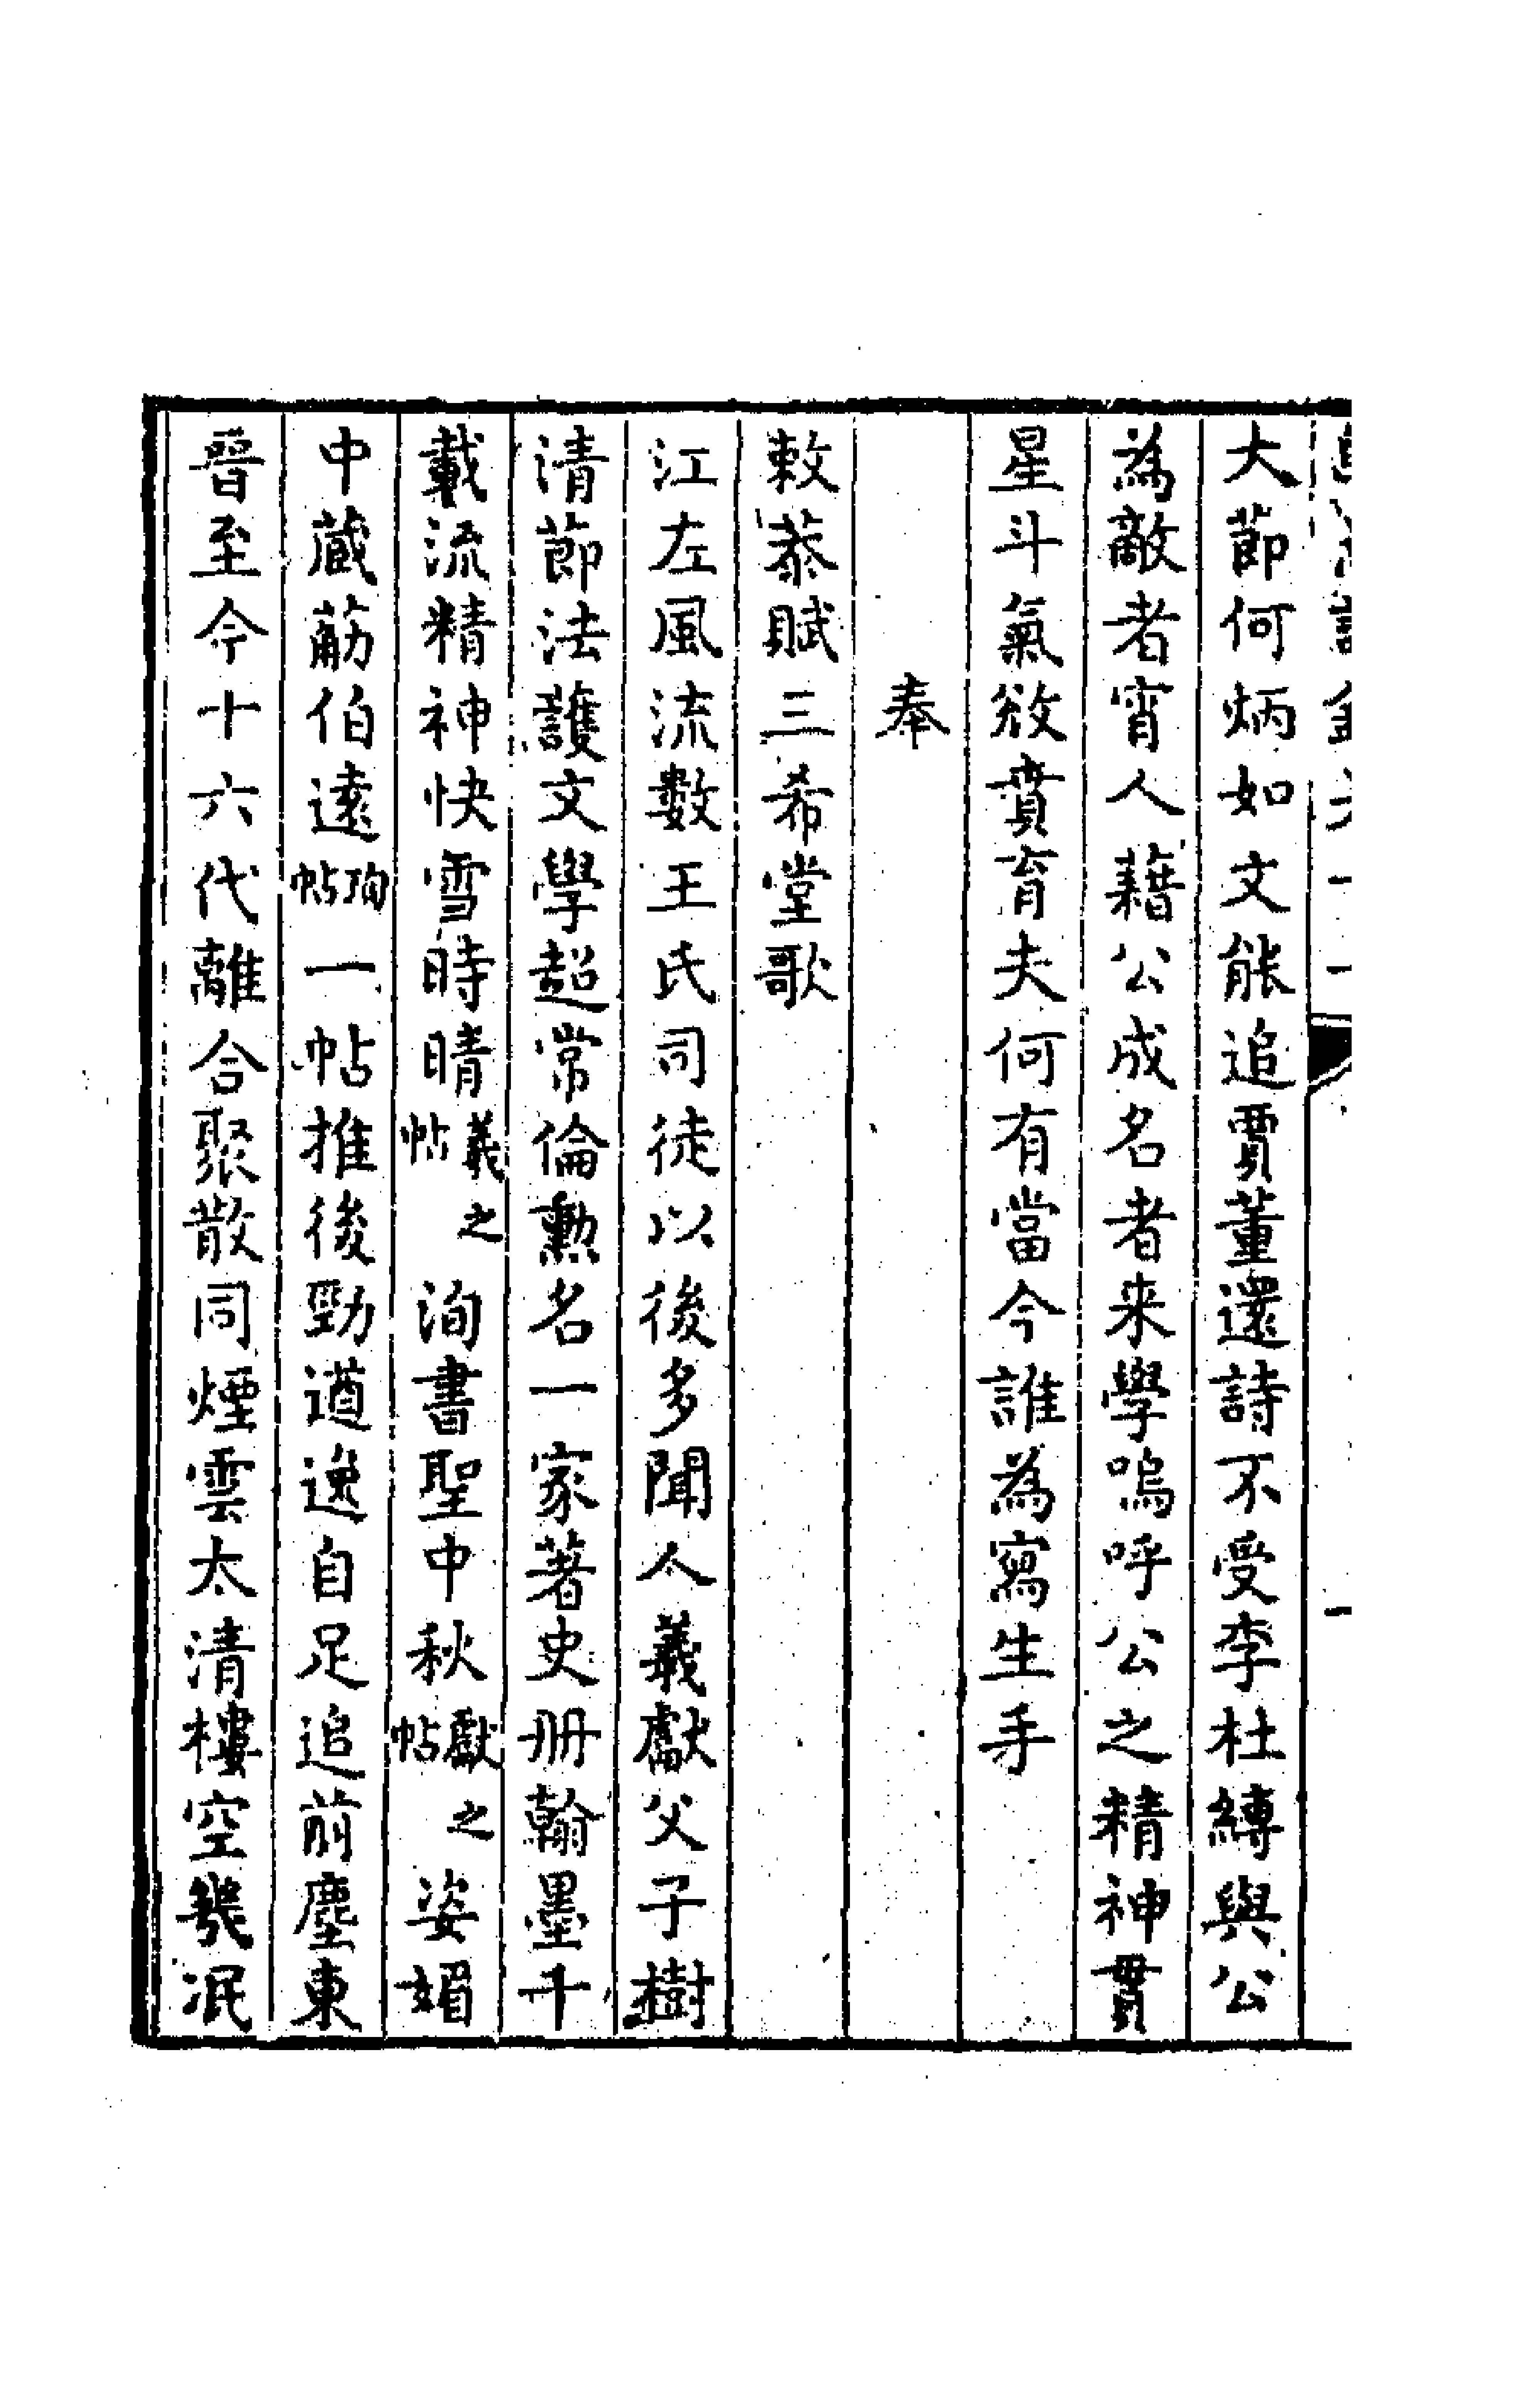 大節何炳如文能追賈董還詩不受李杜縛與公
為敵者宵人藉公成名者来學嗚呼公之精神貫
星斗氣欲賁育夫何有當今誰為寫生手
奉
敕恭賦三希堂歌
江左風流數王氏司徒以後多聞人羲獻父子樹
清節法護文學超常倫勲名一家著史册翰墨千
載流精神快雪時晴羲之帖洵書聖中秋獻之帖姿媚
中蔵觔伯遠珣帖一帖推後勁遒逸自足追前塵東
晉至今十六代離合聚散同煙雲太清樓空幾泯